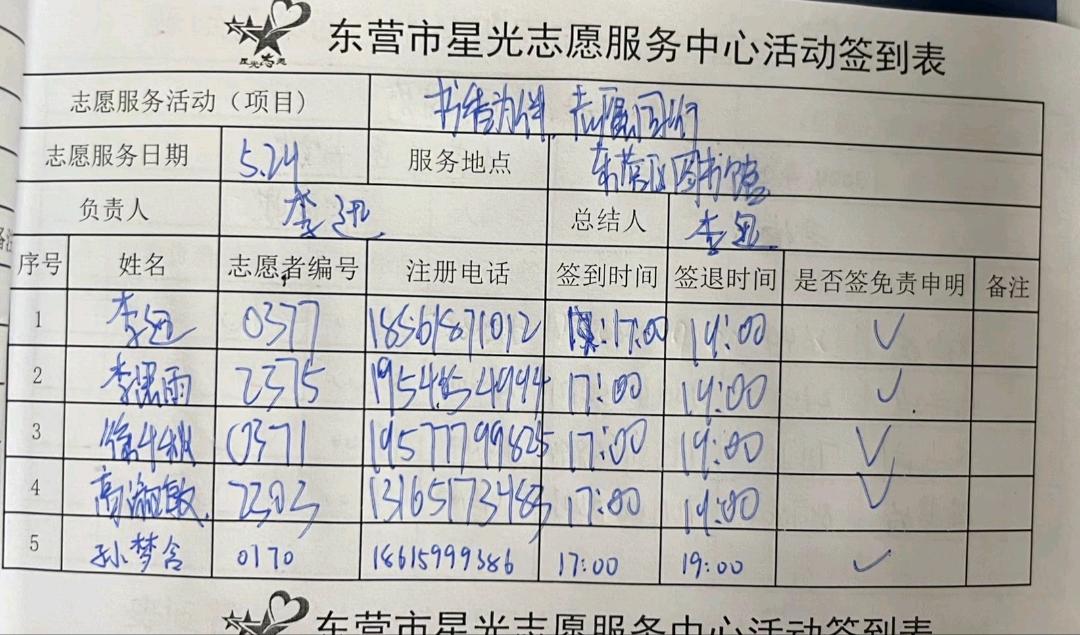 东营市星光志愿服务中心活动签到表
星光志愿
志愿服务活动（项目） 书香为伴，志愿同行
志愿服务日期 5.24 服务地点 东营区图书馆
负责人 李迅 总结人 李迅
序号 姓名 志愿者编号 注册电话 签到时间 签退时间 是否签免责申明 备注
1 李迅 0377 18561871012 17:00 19:00 ✓
2 李思雨 2375 19:00 17:00 ✓
3 徐千秋 0371 19577799825 17:00 19:00 ✓
4 高淑敏 2303 13165173483 17:00 19:00 ✓
5 孙梦含 0170 18615999386 17:00 19:00 ✓
东营市星光志愿服务中心活动签到表